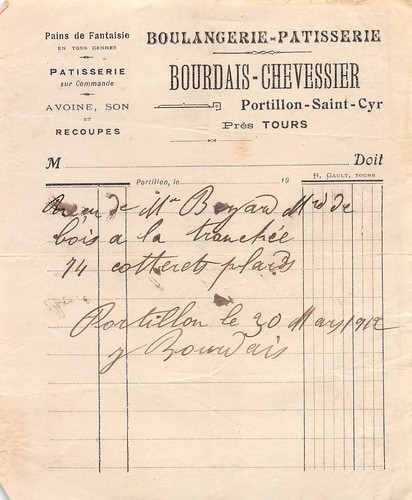 Pains de Fantaisie
EN TOUS GENRES
PATISSERIE
sur Commande
AVOINE, SON
ET
RECOUPES
BOULANGERIE-PATISSERIE
BOURDAIS-CHEVESSIER
Portillon-Saint-Cyr
Près TOURS
M Doit
Portillon, le 19 H. GAULT, TOURS
de Mr Boyard Md de
bois a la tranchée
74 cotterets plards
Portillon le 20 Mars 1912
Bourdais